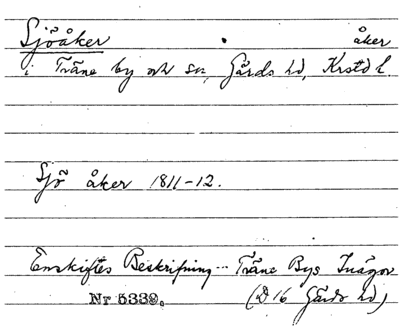 Sjöåker åker
i Träne by och sn, Gärds hd, Krstd l.
Sjö åker 1811-12.
Enskiftes Beskrifning... Träne Bys Inägor
Nr 5339. (D 16 Gärds hd)